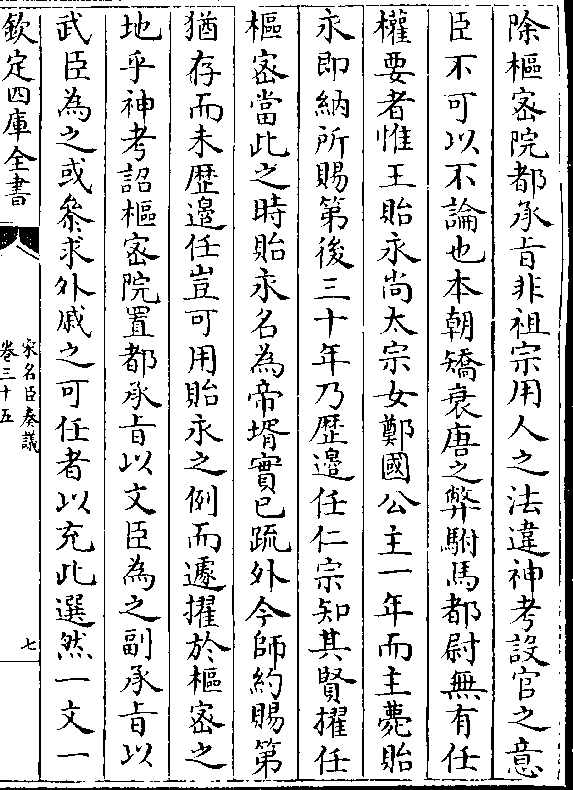 除樞宻院都承㫖非祖宗用人之法違神考設官之意
臣不可以不論也本朝矯衰唐之弊駙馬都尉無有任
權要者惟王貽永尚太宗女鄭國公主一年而主薨貽
永即納所賜第後三十年乃歴邉任仁宗知其賢擢任
樞宻當此之時貽永名為帝壻實已疏外今師約賜第
猶存而未歴邉任豈可用貽永之例而遽擢於樞宻之
地乎神考詔樞宻院置都承㫖以文臣為之副承㫖以
武臣為之或參求外戚之可任者以充此選然一文一
欽定四庫全書
宋名臣奏議
卷三十五
七